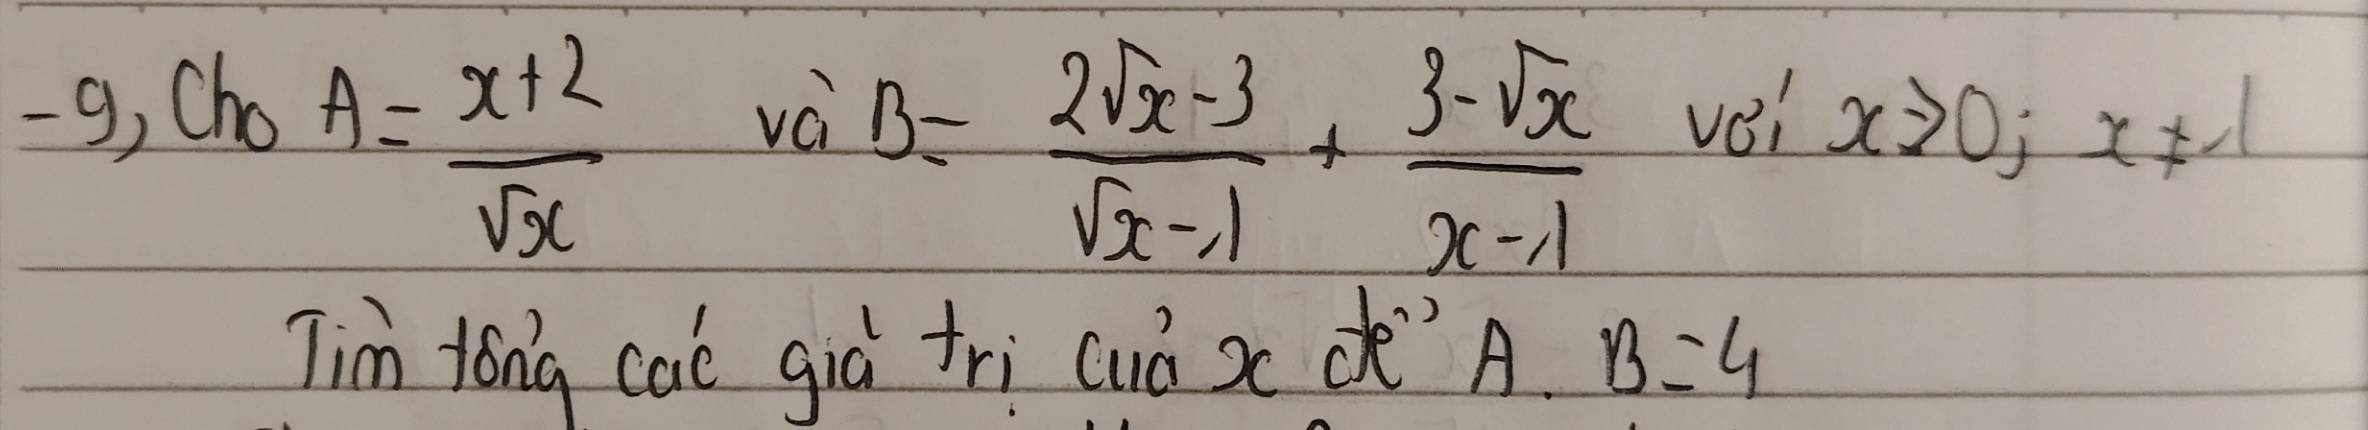 -9, Cho A = \frac{x+2}{\sqrt{x}} và B = \frac{2\sqrt{x}-3}{\sqrt{x}-1} + \frac{3-\sqrt{x}}{x-1} với x > 0; x ≠ 1
Tìm tổng các giá trị của x để A. B = 4